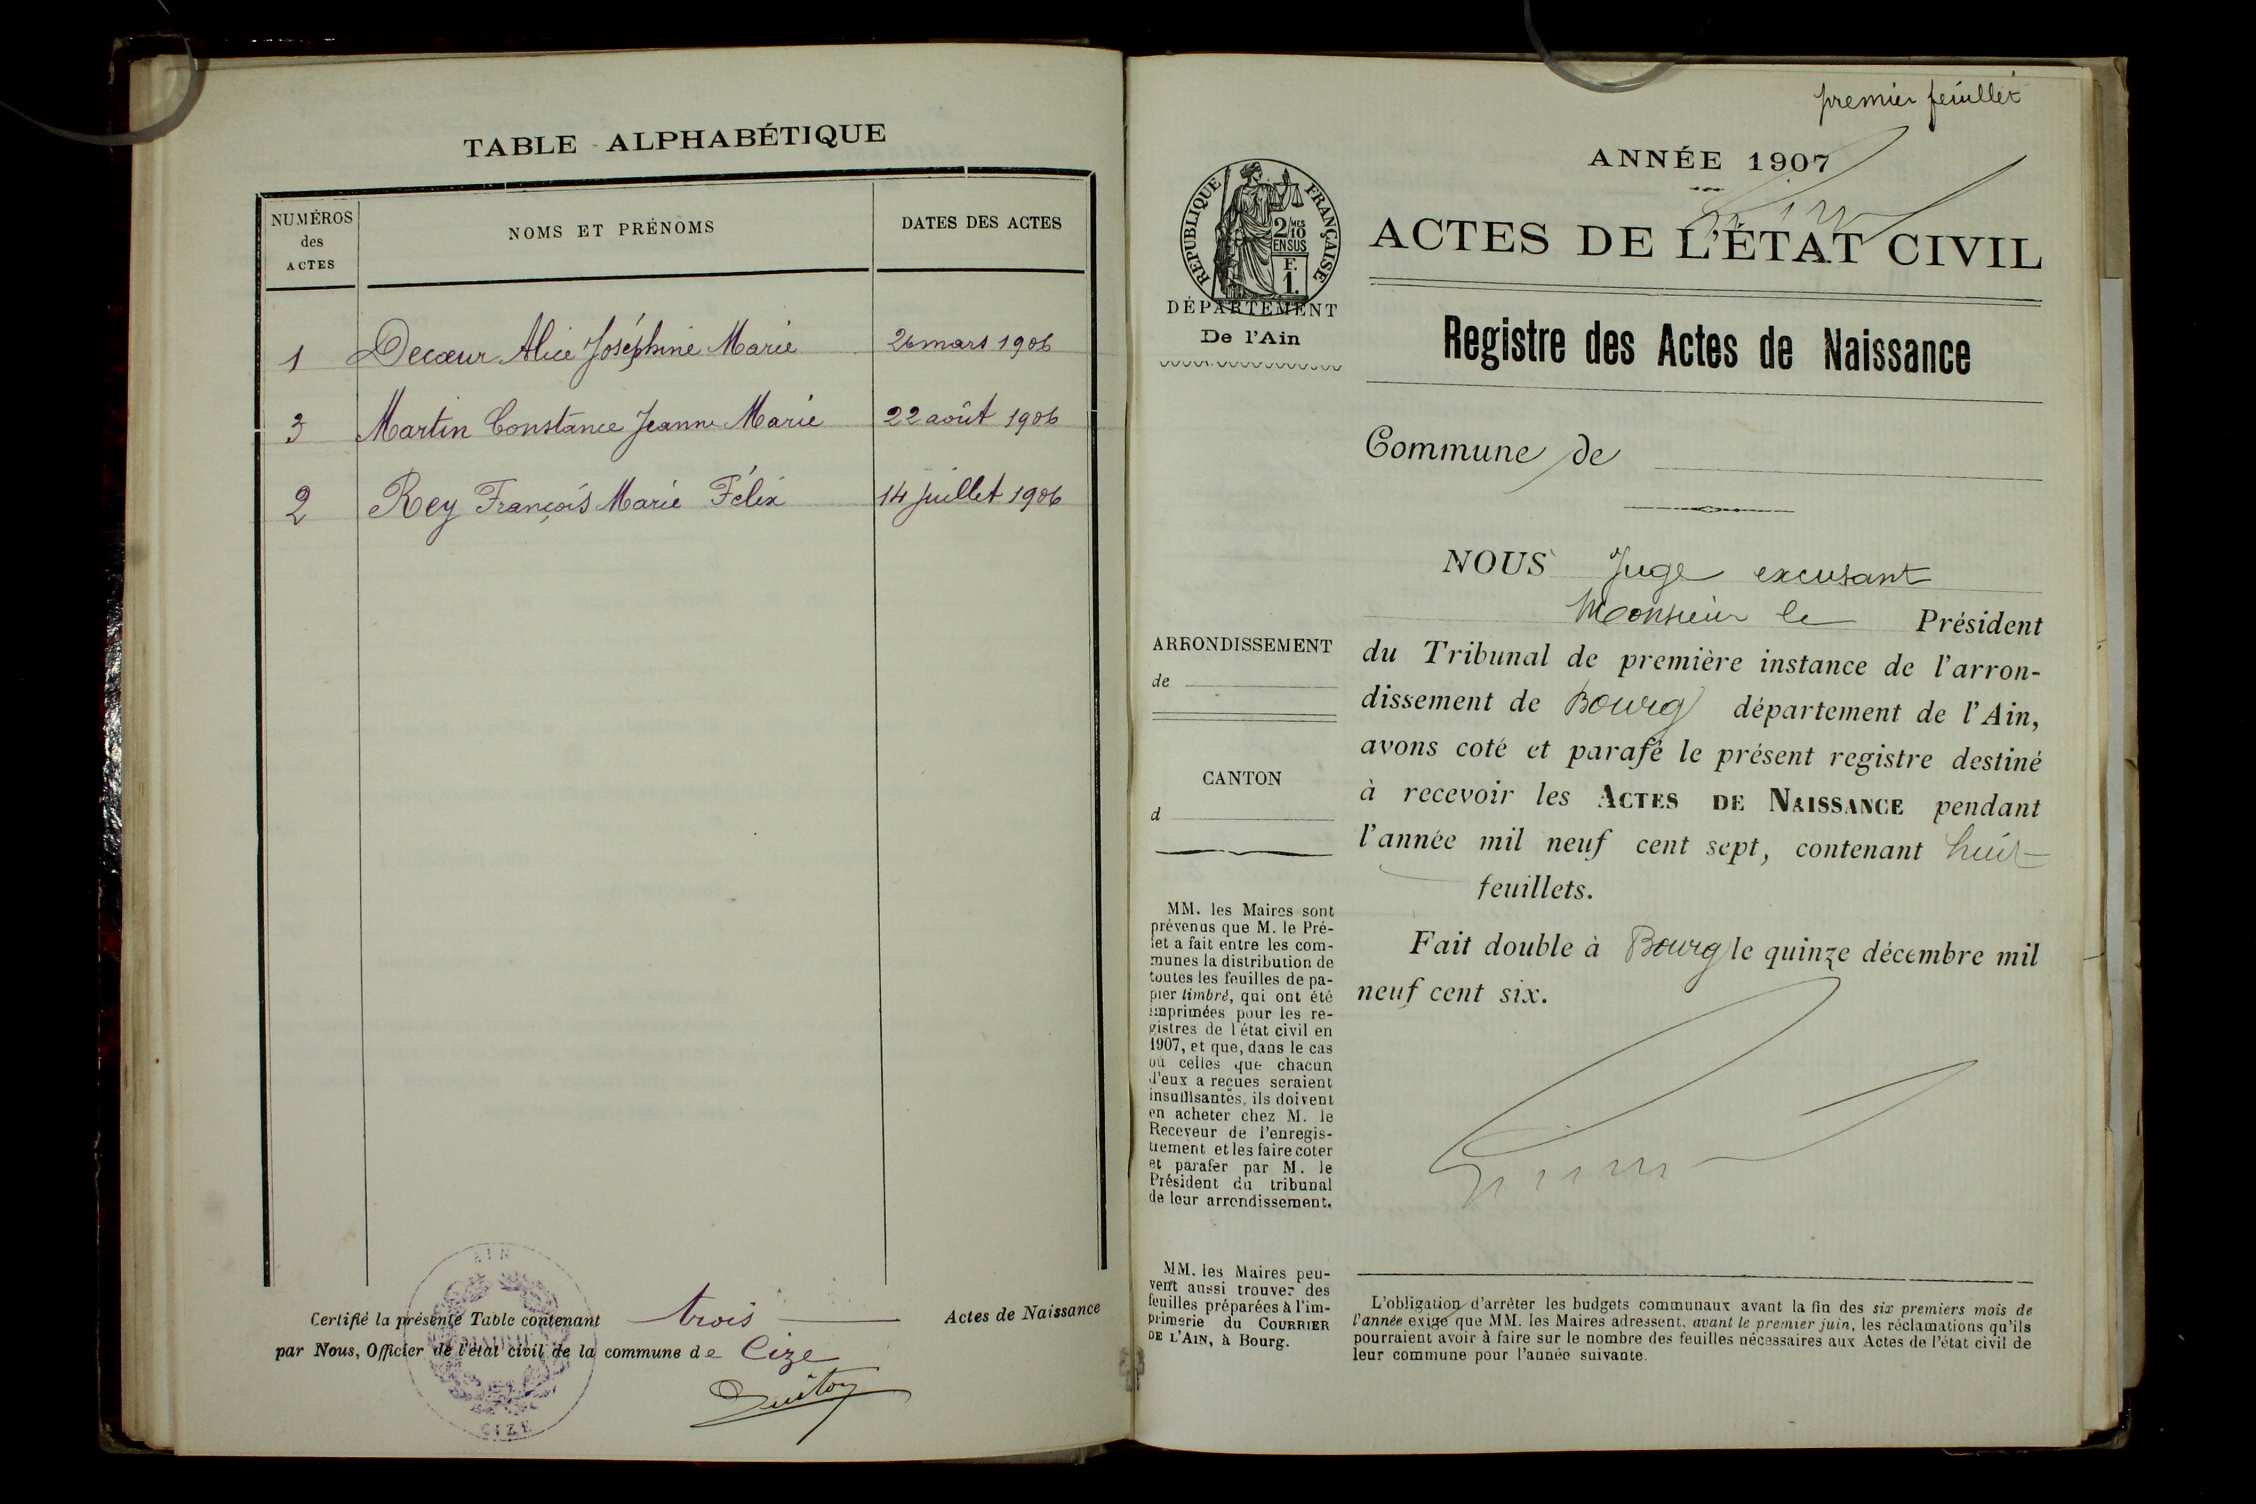 TABLE ALPHABÉTIQUE
NUMÉROS
des
ACTES
NOMS ET PRÉNOMS
DATES DES ACTES
1 Decœur Alice Joséphine Marie 26 mars 1906
3 Martin Constance Jeanne Marie 22 août 1906
2 Rey François Marie Félix 14 juillet 1906
Certifié la présente Table contenant trois Actes de Naissance
par Nous, Officier de l'état civil de la commune de Cize
AIN
MAIRIE
CIZE
premier feuillet
ANNÉE 1907
RÉPUBLIQUE FRANÇAISE
2/10 MES
EN SUS
F.
1.
ACTES DE L'ÉTAT CIVIL
DÉPARTEMENT
De l'Ain
Registre des Actes de Naissance
Commune de
NOUS Juge excusant
Monsieur le Président
du Tribunal de première instance de l'arron-
dissement de Bourg département de l'Ain,
avons coté et parafé le présent registre destiné
à recevoir les ACTES DE NAISSANCE pendant
l'année mil neuf cent sept, contenant huit
feuillets.
Fait double à Bourg le quinze décembre mil
neuf cent six.
ARRONDISSEMENT
de
CANTON
d
MM. les Maires sont
prévenus que M. le Pré-
fet a fait entre les com-
munes la distribution de
toutes les feuilles de pa-
pier timbré, qui ont été
imprimées pour les re-
gistres de l'état civil en
1907, et que, dans le cas
où celles que chacun
d'eux a reçues seraient
insuffisantes, ils doivent
en acheter chez M. le
Receveur de l'enregis-
trement et les faire coter
et parafer par M. le
Président du tribunal
de leur arrondissement.
MM. les Maires peu-
vent aussi trouver des
feuilles préparées à l'im-
primerie du COURRIER
DE L'AIN, à Bourg.
L'obligation d'arrêter les budgets communaux avant la fin des six premiers mois de
l'année exige que MM. les Maires adressent, avant le premier juin, les réclamations qu'ils
pourraient avoir à faire sur le nombre des feuilles nécessaires aux Actes de l'état civil de
leur commune pour l'année suivante.